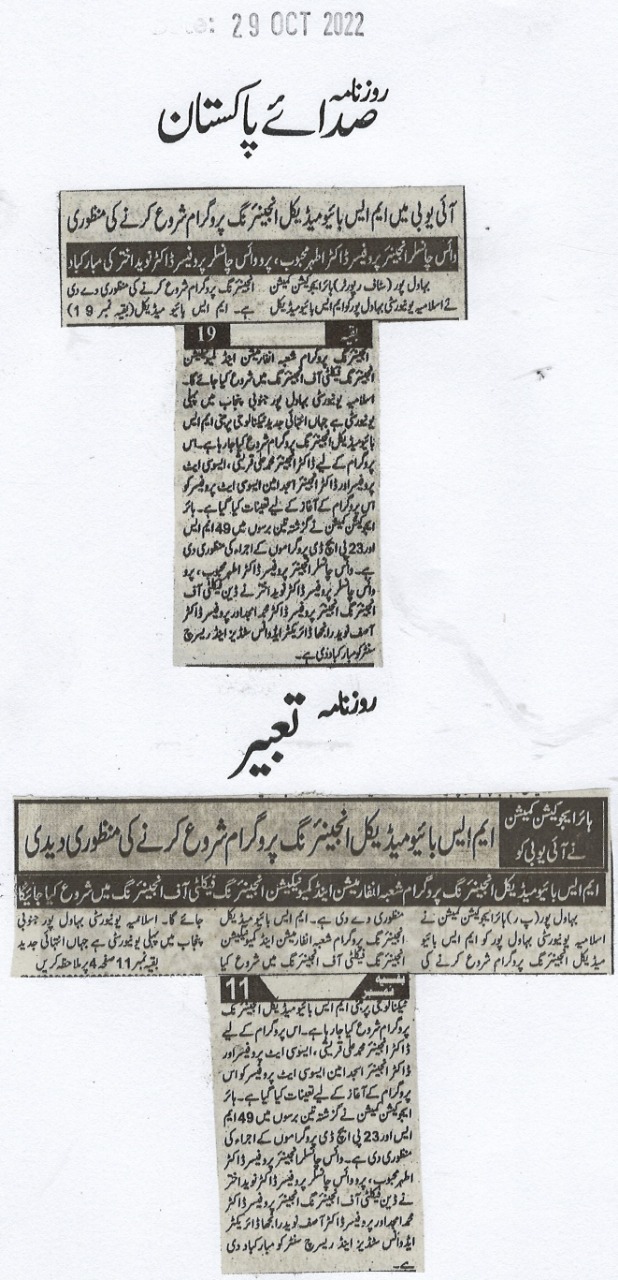 Date: 29 OCT 2022
روزنامہ
صدائے پاکستان
آئی یو بی میں ایم ایس بائیو میڈیکل انجینئرنگ پروگرام شروع کرنے کی منظوری
وائس چانسلر انجینئر پروفیسر ڈاکٹر اطہر محبوب، پرو وائس چانسلر پروفیسر ڈاکٹر نوید اختر کی مبارکباد
بہاول پور (سٹاف رپورٹر) ہائر ایجوکیشن کمیشن
نے اسلامیہ یونیورسٹی بہاول پور کو ایم ایس بائیو میڈیکل
انجینئرنگ پروگرام شروع کرنے کی منظوری دے دی
ہے۔ ایم ایس بائیو میڈیکل (بقیہ نمبر 19)
بقیہ 19
انجینئرنگ پروگرام شعبہ انفارمیشن اینڈ کمیونیکیشن
انجینئرنگ فیکلٹی آف انجینئرنگ میں شروع کیا جائے گا۔
اسلامیہ یونیورسٹی بہاول پور جنوبی پنجاب میں پہلی
یونیورسٹی ہے جہاں انتہائی جدید ٹیکنالوجی پر مبنی ایم ایس
بائیو میڈیکل انجینئرنگ پروگرام شروع کیا جا رہا ہے۔ اس
پروگرام کے لیے ڈاکٹر انجینئر محمد علی قریشی، ایسوسی ایٹ
پروفیسر اور ڈاکٹر انجینئر اسجد امین ایسوسی ایٹ پروفیسر کو
اس پروگرام کے آغاز کے لیے تعینات کیا گیا ہے۔ ہائر
ایجوکیشن کمیشن نے گزشتہ تین برسوں میں 49 ایم ایس
اور 23 پی ایچ ڈی پروگراموں کے اجراء کی منظوری دی
ہے۔ وائس چانسلر انجینئر پروفیسر ڈاکٹر اطہر محبوب، پرو
وائس چانسلر پروفیسر ڈاکٹر نوید اختر نے ڈین فیکلٹی آف
انجینئرنگ انجینئر پروفیسر ڈاکٹر محمد امجد اور پروفیسر ڈاکٹر
آصف نوید رانجھا ڈائریکٹر ایڈوانس سٹڈیز اینڈ ریسرچ
سنٹر کو مبارکباد دی ہے۔
روزنامہ
تعبیر
ہائر ایجوکیشن کمیشن
نے آئی یو بی کو
ایم ایس بائیو میڈیکل انجینئرنگ پروگرام شروع کرنے کی منظوری دیدی
ایم ایس بائیو میڈیکل انجینئرنگ پروگرام شعبہ انفارمیشن اینڈ کمیونیکیشن انجینئرنگ فیکلٹی آف انجینئرنگ میں شروع کیا جائیگا
بہاول پور (پ ر) ہائر ایجوکیشن کمیشن نے
اسلامیہ یونیورسٹی بہاول پور کو ایم ایس بائیو
میڈیکل انجینئرنگ پروگرام شروع کرنے کی
منظوری دے دی ہے۔ ایم ایس بائیو میڈیکل
انجینئرنگ پروگرام شعبہ انفارمیشن اینڈ کمیونیکیشن
انجینئرنگ فیکلٹی آف انجینئرنگ میں شروع کیا
جائے گا۔ اسلامیہ یونیورسٹی بہاول پور جنوبی
پنجاب میں پہلی یونیورسٹی ہے جہاں انتہائی جدید
بقیہ نمبر 11 صفحہ 4 پر ملاحظہ کریں
بقیہ نمبر 11
ٹیکنالوجی پر مبنی ایم ایس بائیو میڈیکل انجینئرنگ
پروگرام شروع کیا جا رہا ہے۔ اس پروگرام کے لیے
ڈاکٹر انجینئر محمد علی قریشی، ایسوسی ایٹ پروفیسر اور
ڈاکٹر انجینئر اسجد امین ایسوسی ایٹ پروفیسر کو اس
پروگرام کے آغاز کے لیے تعینات کیا گیا ہے۔ ہائر
ایجوکیشن کمیشن نے گزشتہ تین برسوں میں 49 ایم
ایس اور 23 پی ایچ ڈی پروگراموں کے اجراء کی
منظوری دی ہے۔ وائس چانسلر انجینئر پروفیسر ڈاکٹر
اطہر محبوب، پرو وائس چانسلر پروفیسر ڈاکٹر نوید اختر
نے ڈین فیکلٹی آف انجینئرنگ انجینئر پروفیسر ڈاکٹر
محمد امجد اور پروفیسر ڈاکٹر آصف نوید رانجھا ڈائریکٹر
ایڈوانس سٹڈیز اینڈ ریسرچ سنٹر کو مبارکباد دی
ہے۔